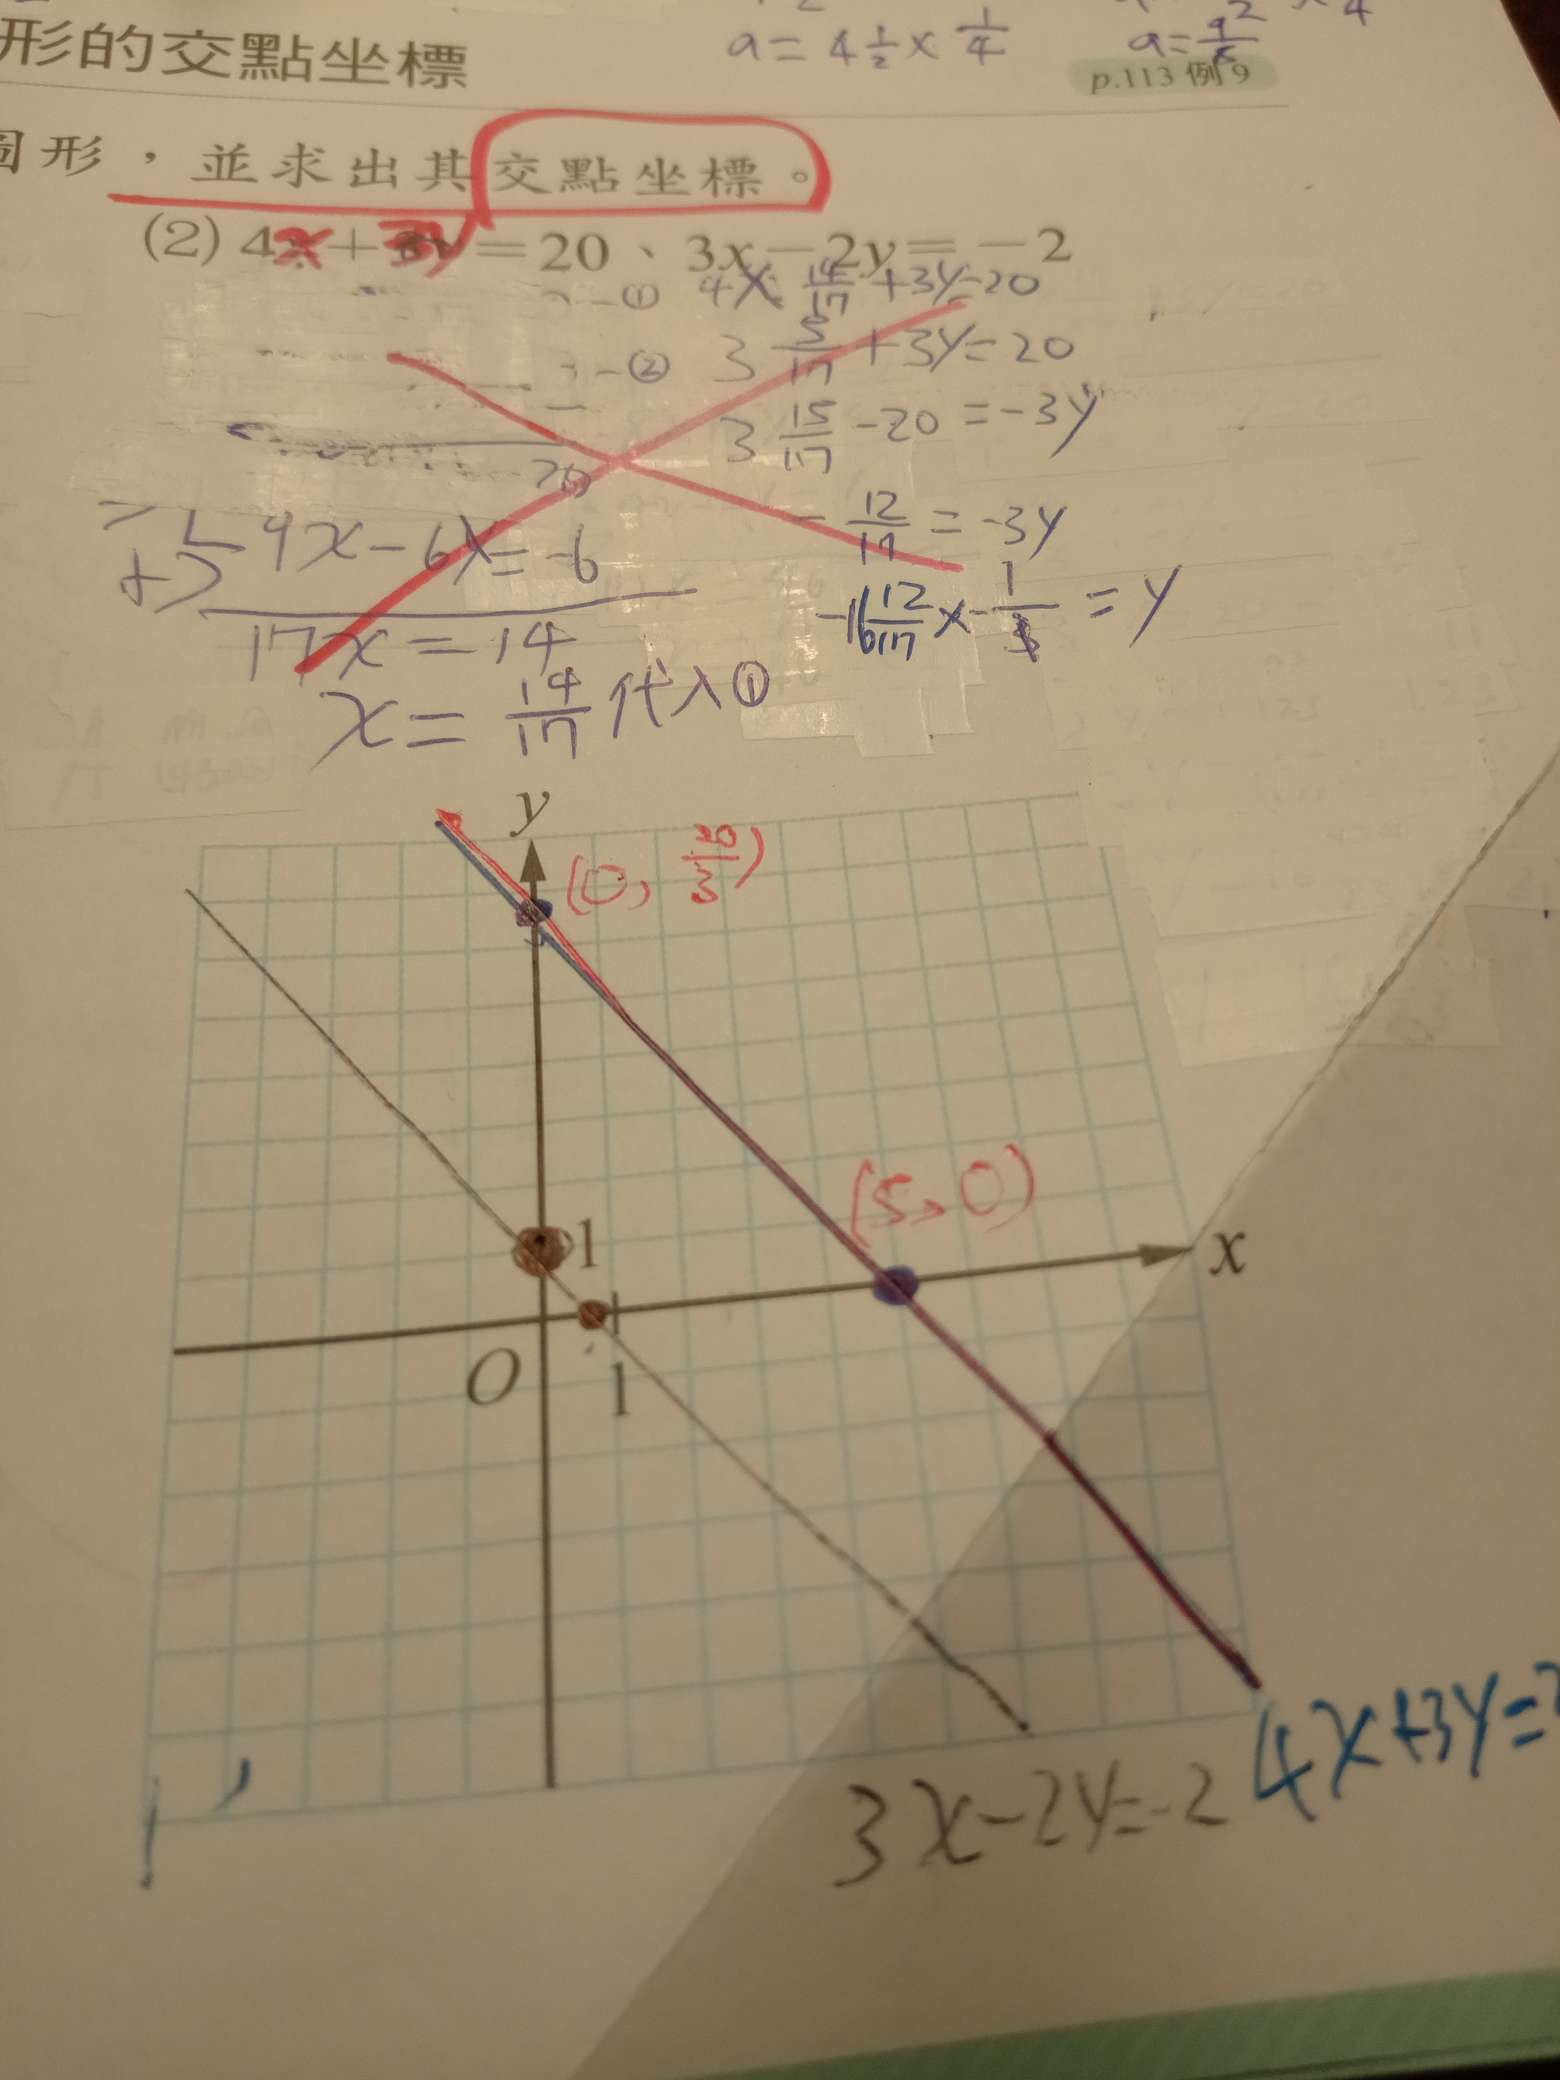 a = 4 1/2 × 1/4
形的交點坐標
p.113 例 9
圖形，並求出其交點坐標。
(2) 4x+3y=20、3x-2y=-2
-① 4× 14/17 +3y=20
-② 3 5/17 +3y=20
3 15/17 -20 =-3y
9x-6y=-6
- 12/17 = -3y
17x=14
-16 12/17 × - 1/3 = y
x= 14/17 代入①
y
(0, 20/3)
(5,0)
1
x
O
1
4x+3y=
3x-2y=-2